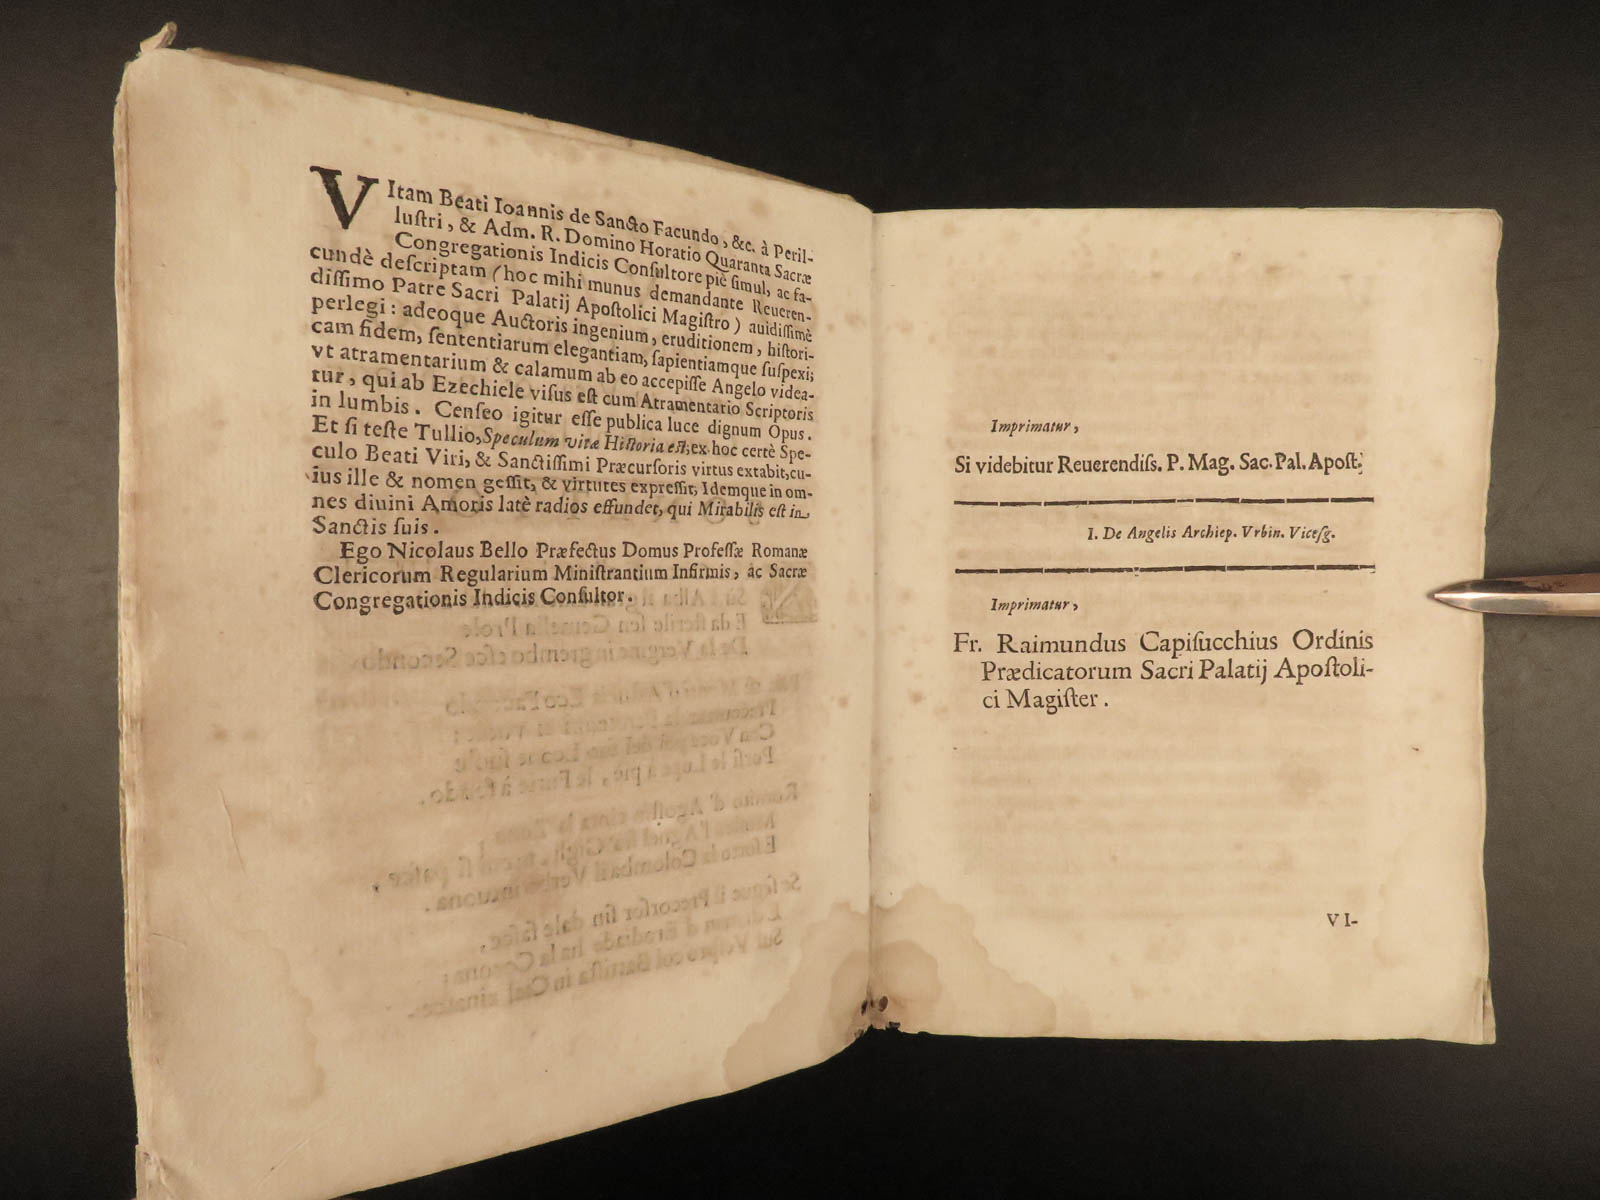 VItam Beati Ioannis de Sancto Facundo, &c. à Peril-
lustri, & Adm. R. Domino Horatio Quaranta Sacræ
Congregationis Indicis Consultore piè simul, ac fa-
cundè descriptam (hoc mihi munus demandante Reueren-
dissimo Patre Sacri Palatij Apostolici Magistro) auidissimè
perlegi: adeoque Auctoris ingenium, eruditionem, histori-
cam fidem, sententiarum elegantiam, sapientiamque suspexi;
vt atramentarium & calamum ab eo accepisse Angelo videa-
tur, qui ab Ezechiele visus est cum Atramentario Scriptoris
in lumbis. Censeo igitur esse publica luce dignum Opus.
Et si teste Tullio, Speculum vitæ Historia est, ex hoc certè Spe-
culo Beati Viri, & Sanctissimi Præcursoris virtus extabit, cu-
ius ille & nomen gessit, & virtutes expressit, Idemque in om-
nes diuini Amoris latè radios effundet, qui Mirabilis est in
Sanctis suis.
Ego Nicolaus Bello Præfectus Domus Professæ Romanæ
Clericorum Regularium Ministrantium Infirmis, ac Sacræ
Congregationis Indicis Consultor.
Imprimatur,
Si videbitur Reuerendiss. P. Mag. Sac. Pal. Apost.
I. De Angelis Archiep. Vrbin. Vicesg.
Imprimatur,
Fr. Raimundus Capisucchius Ordinis
Prædicatorum Sacri Palatij Apostoli-
ci Magister.
VI-